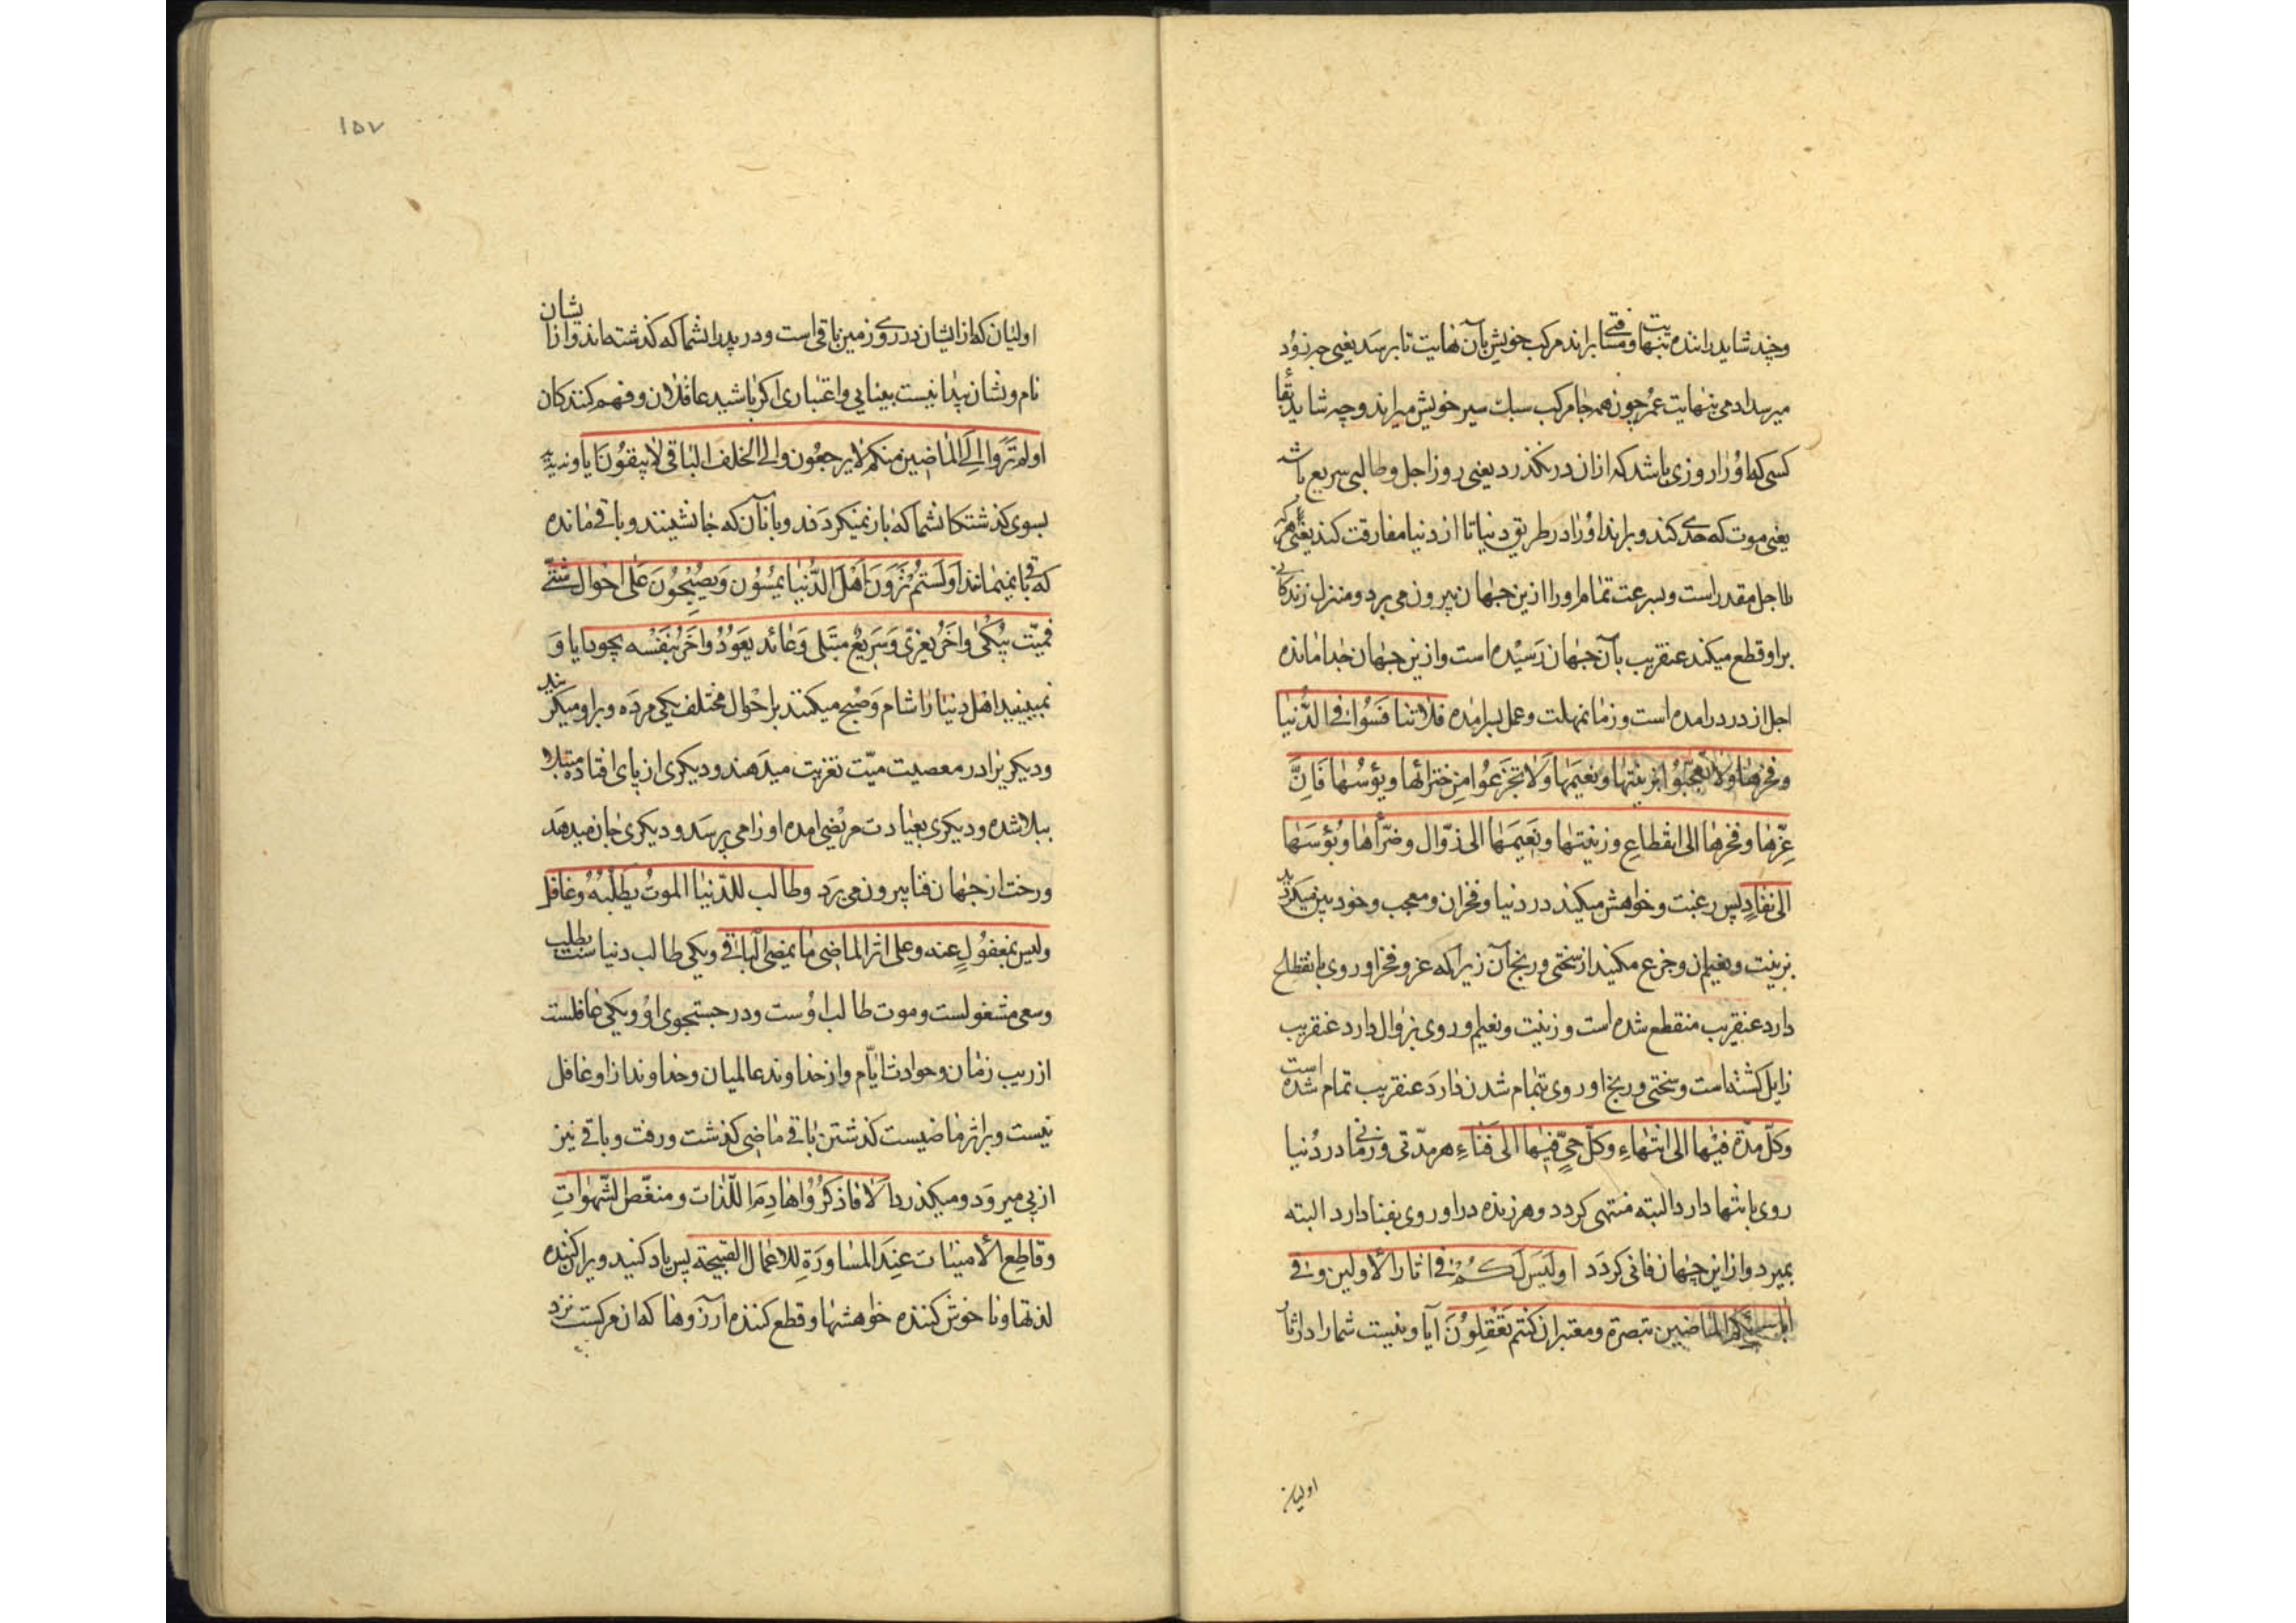 وچند شاید راننده بنهایت ومسافتی براند مرکب خویش بآن نهایت تا برسد یعنی چه زود
میرسد ادمی بنهایت عمر چون همه جا مرکب سبك سیر خویش میراند وچه شاید بقأ
کسی که اورا روزی باشد که ازان در نکذرد یعنی روز اجل وطالبی سریع باشد
یعنی موت که حدی کند وبراند اورا در طریق دنیا تا از دنیا مفارقت کند یعنی هرکه
را اجل مقدر است وبسرعت تمام اورا ازین جهان بیرون می برد ومنزل زندکانی
براو قطع میکند عنقریب بآن جهان رسیده است وازین جهان جدا مانده
اجل از در درامده است وزمان مهلت وعمل بسرامده فلا تنافسوا فی الدنیا
وفخرها ولا تعجبوا بزینتها ونعیمها ولا تجزعوا من ضرائها وبؤسها فان
عزها وفخرها الی انقطاع وزینتها ونعیمها الی زوال وضرأها وبؤسها
الی نفاد پس رغبت وخواهش میکنید در دنیا وفخران ومعجب وخود بین میکردید
بزینت ونعیم ان وجزع مکنید از سختی ورنج آن زیرا که عز وفخر او روی بانقطاع
دارد عنقریب منقطع شده است وزینت ونعیم او روی بزوال دارد عنقریب
زایل کشته است وسختی ورنج او روی بتمام شدن دارد عنقریب تمام شده است
وکل مدة فیها الی انتهاء وکل حی فیها الی فناء هر مدتی وزمانی در دنیا
روی بانتها دارد البته منتهی کردد وهر زنده در او روی بفنا دارد البته
بمیرد وازاین جهان فانی کردد اولیس لکم فی اثار الاولین وفی
ابائکم الماضین تبصرة ومعتبر ان کنتم تعقلون آیا ونیست شمارا در اثار
اولیان
۱۵۷
اولیان که از ایشان در روی زمین باقی است ودر پدرانشما که کذشته اند وازایشان
نام ونشان پیدا نیست بینایی واعتباری اکر باشید عاقلان وفهم کنندکان
اولم تروا الی الماضین منکم لا یرجعون والی الخلف الباقی لا یبقون آیا وندیدید
بسوی کذشتکانشما که باز نمیکردند وبانآن که جانشینند وباقی مانده
که باقی نمیمانند اولستم ترون اهل الدنیا یمسون ویصبحون علی احوال شتی
فمیت یبکی واخر یعزی وسریع مبتلی وعائد یعود واخر بنفسه یجود ایا و
نمیبینید اهل دنیا را شام وصبح میکنند بر احوال مختلف یکی مرده وبراو میکریند
ودیکریرا در معصیت میت تعزیت میدهند ودیکری ازپای افتاده مبتلا
ببلا شده ودیکری بعیادت مریضی امده اورا می پرسد ودیکری جان میدهد
ورخت از جهان فنا بیرون می برد وطالب للدنیا الموت یطلبه وغافل
ولیس بمغفول عنه وعلی اثر الماضی ما یمضی الباقی ویکی طالب دنیاست بطلب
وسعی مشغولست وموت طالب اوست ودر جستجوی او ویکی غافلست
از ریب زمان وحوادث ایام واز خداوند عالمیان وخداوند ازاو غافل
نیست وبر اثر ماضیست کذشتن باقی ماضی کذشت ورفت وباقی نیز
ازپی میرود ومیکذرد الا فاذکروا هادم اللذات ومنغص الشهوات
وقاطع الامنیات عند المساورة للاعمال القبیحة پس یاد کنید ویران کننده
لذتها ونا خوش کننده خواهشها وقطع کننده آرزوها که ان مرکست نزد